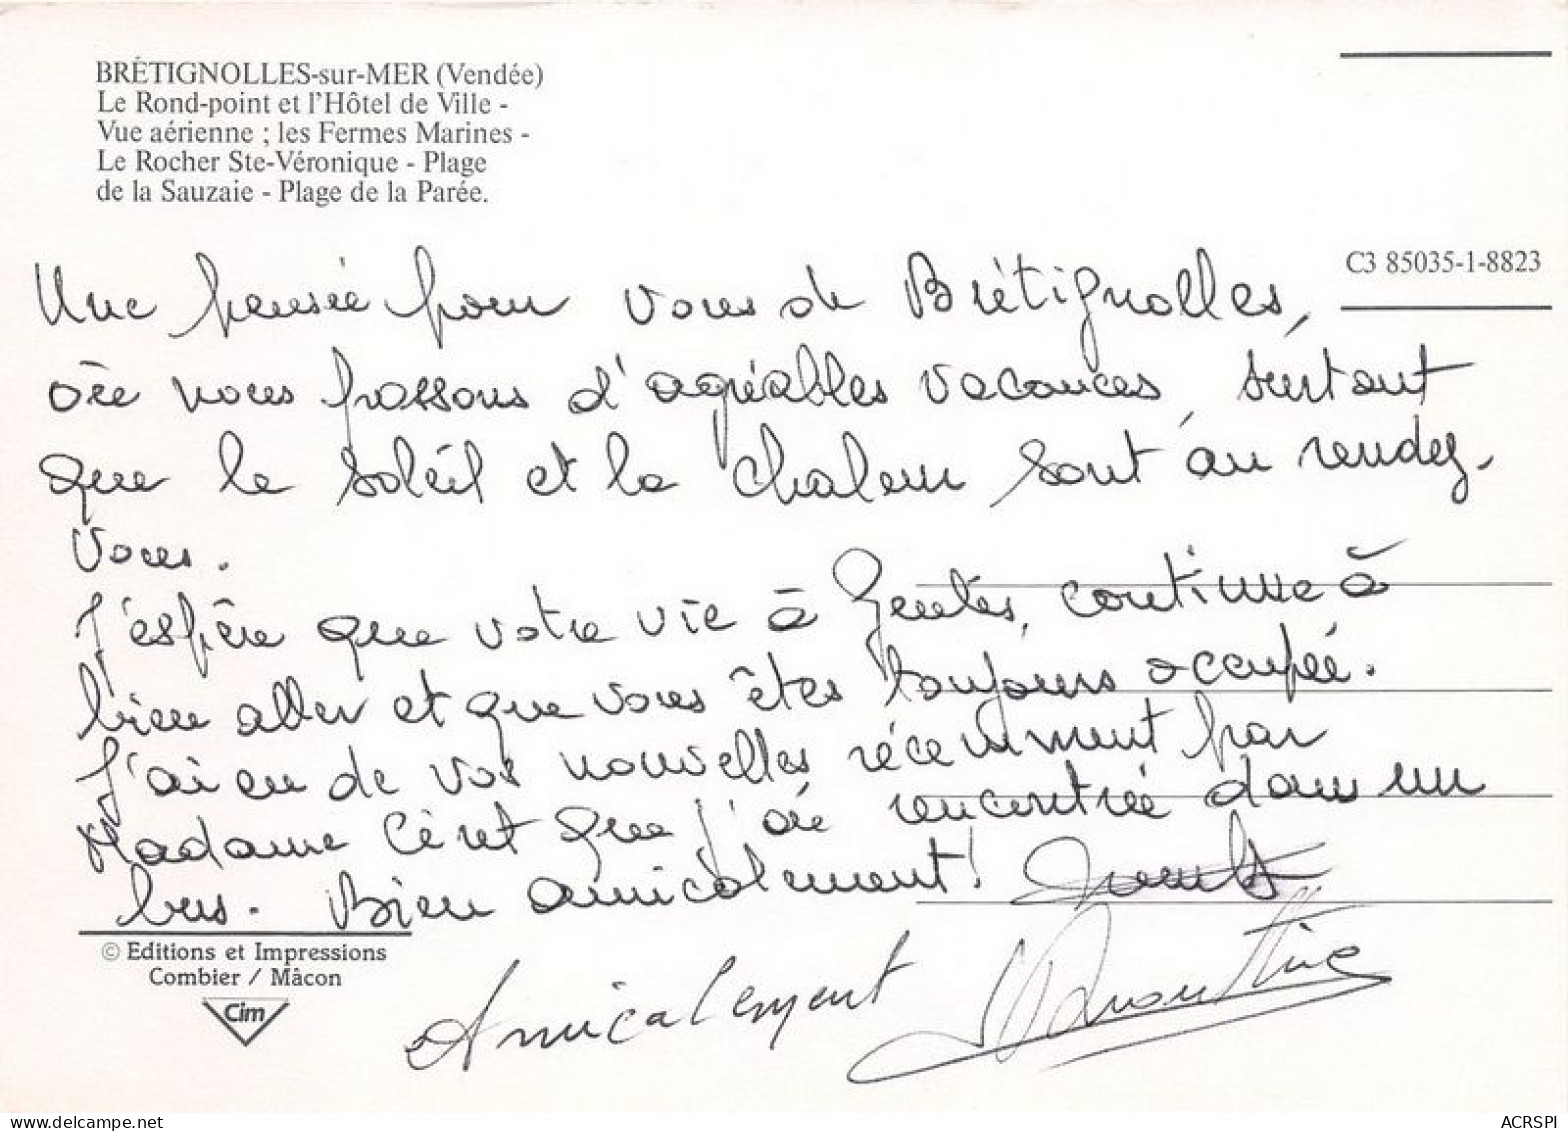 BRÉTIGNOLLES-sur-MER (Vendée)
Le Rond-point et l'Hôtel de Ville -
Vue aérienne ; les Fermes Marines -
Le Rocher Ste-Véronique - Plage
de la Sauzaie - Plage de la Parée.
C3 85035-1-8823
Une pensée pour vous de Brétignolles,
où nous passons d'agréables vacances, surtout
que le soleil et la chaleur sont au rendez-
vous.
J'espère que votre vie à continue à
bien aller et que vous êtes toujours occupée.
J'ai eu de vos nouvelles récemment par
Madame que j'ai rencontrée dans un
bus. Bien amicalement!
© Editions et Impressions
Combier / Mâcon
Cim
Amicalement
delcampe.net
ACRSPI